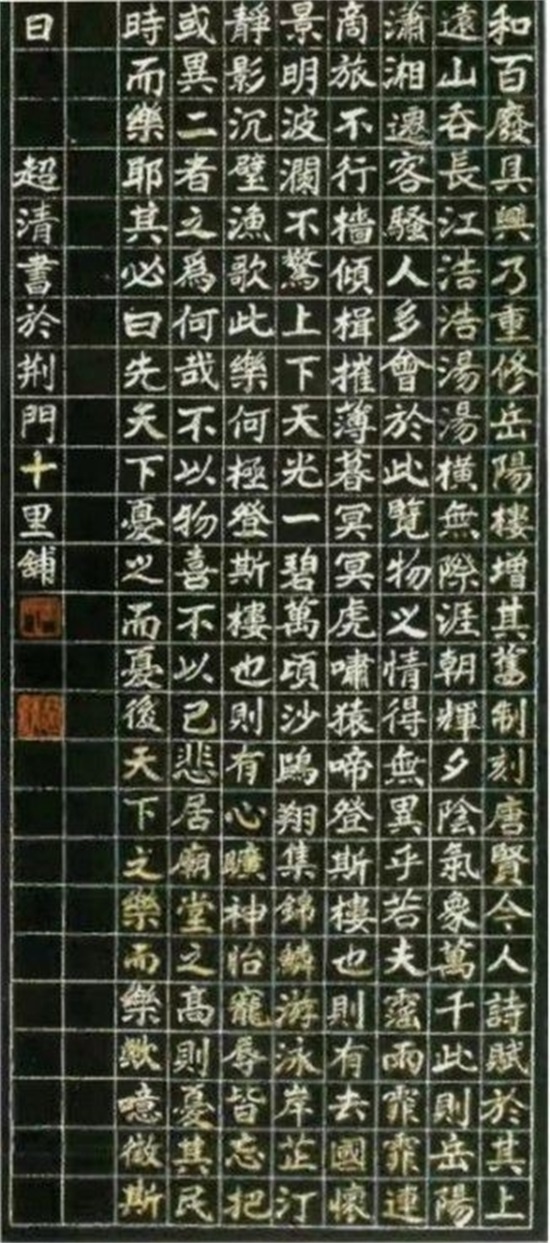 和百廢具興乃重修岳陽樓增其舊制刻唐賢今人詩賦於其上
遠山吞長江浩浩湯湯橫無際涯朝輝夕陰氣象萬千此則岳陽
瀟湘遷客騷人多會於此覽物之情得無異乎若夫霪雨霏霏連
商旅不行檣傾楫摧薄暮冥冥虎嘯猿啼登斯樓也則有去國懷
景明波瀾不驚上下天光一碧萬頃沙鷗翔集錦鱗游泳岸芷汀
靜影沉璧漁歌此樂何極登斯樓也則有心曠神怡寵辱皆忘把
或異二者之爲何哉不以物喜不以己悲居廟堂之高則憂其民
時而樂耶其必曰先天下憂之而憂後天下之樂而樂歟噫微斯
日 超清書於荆門十里鋪